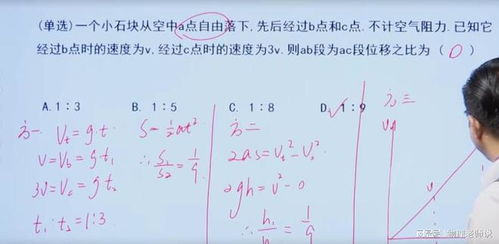 (单选)一个小石块从空中a点自由落下.先后经过b点和c点.不计空气阻力.已知它
经过b点时的速度为v.经过c点时的速度为3v.则ab段为ac段位移之比为( D )
A.1:3 B. 1:5 C. 1:8 D. 1:9
方一 Vt=g·t
V=Vb=g·t1
3V=Vc=gt2
t1:t2=1:3
S=1/2at²
∴ S1/S2=1/9
方二
2as=Vt²-V0²
2gh=V²-0
∴ h1/h=1/9
方三
V
V